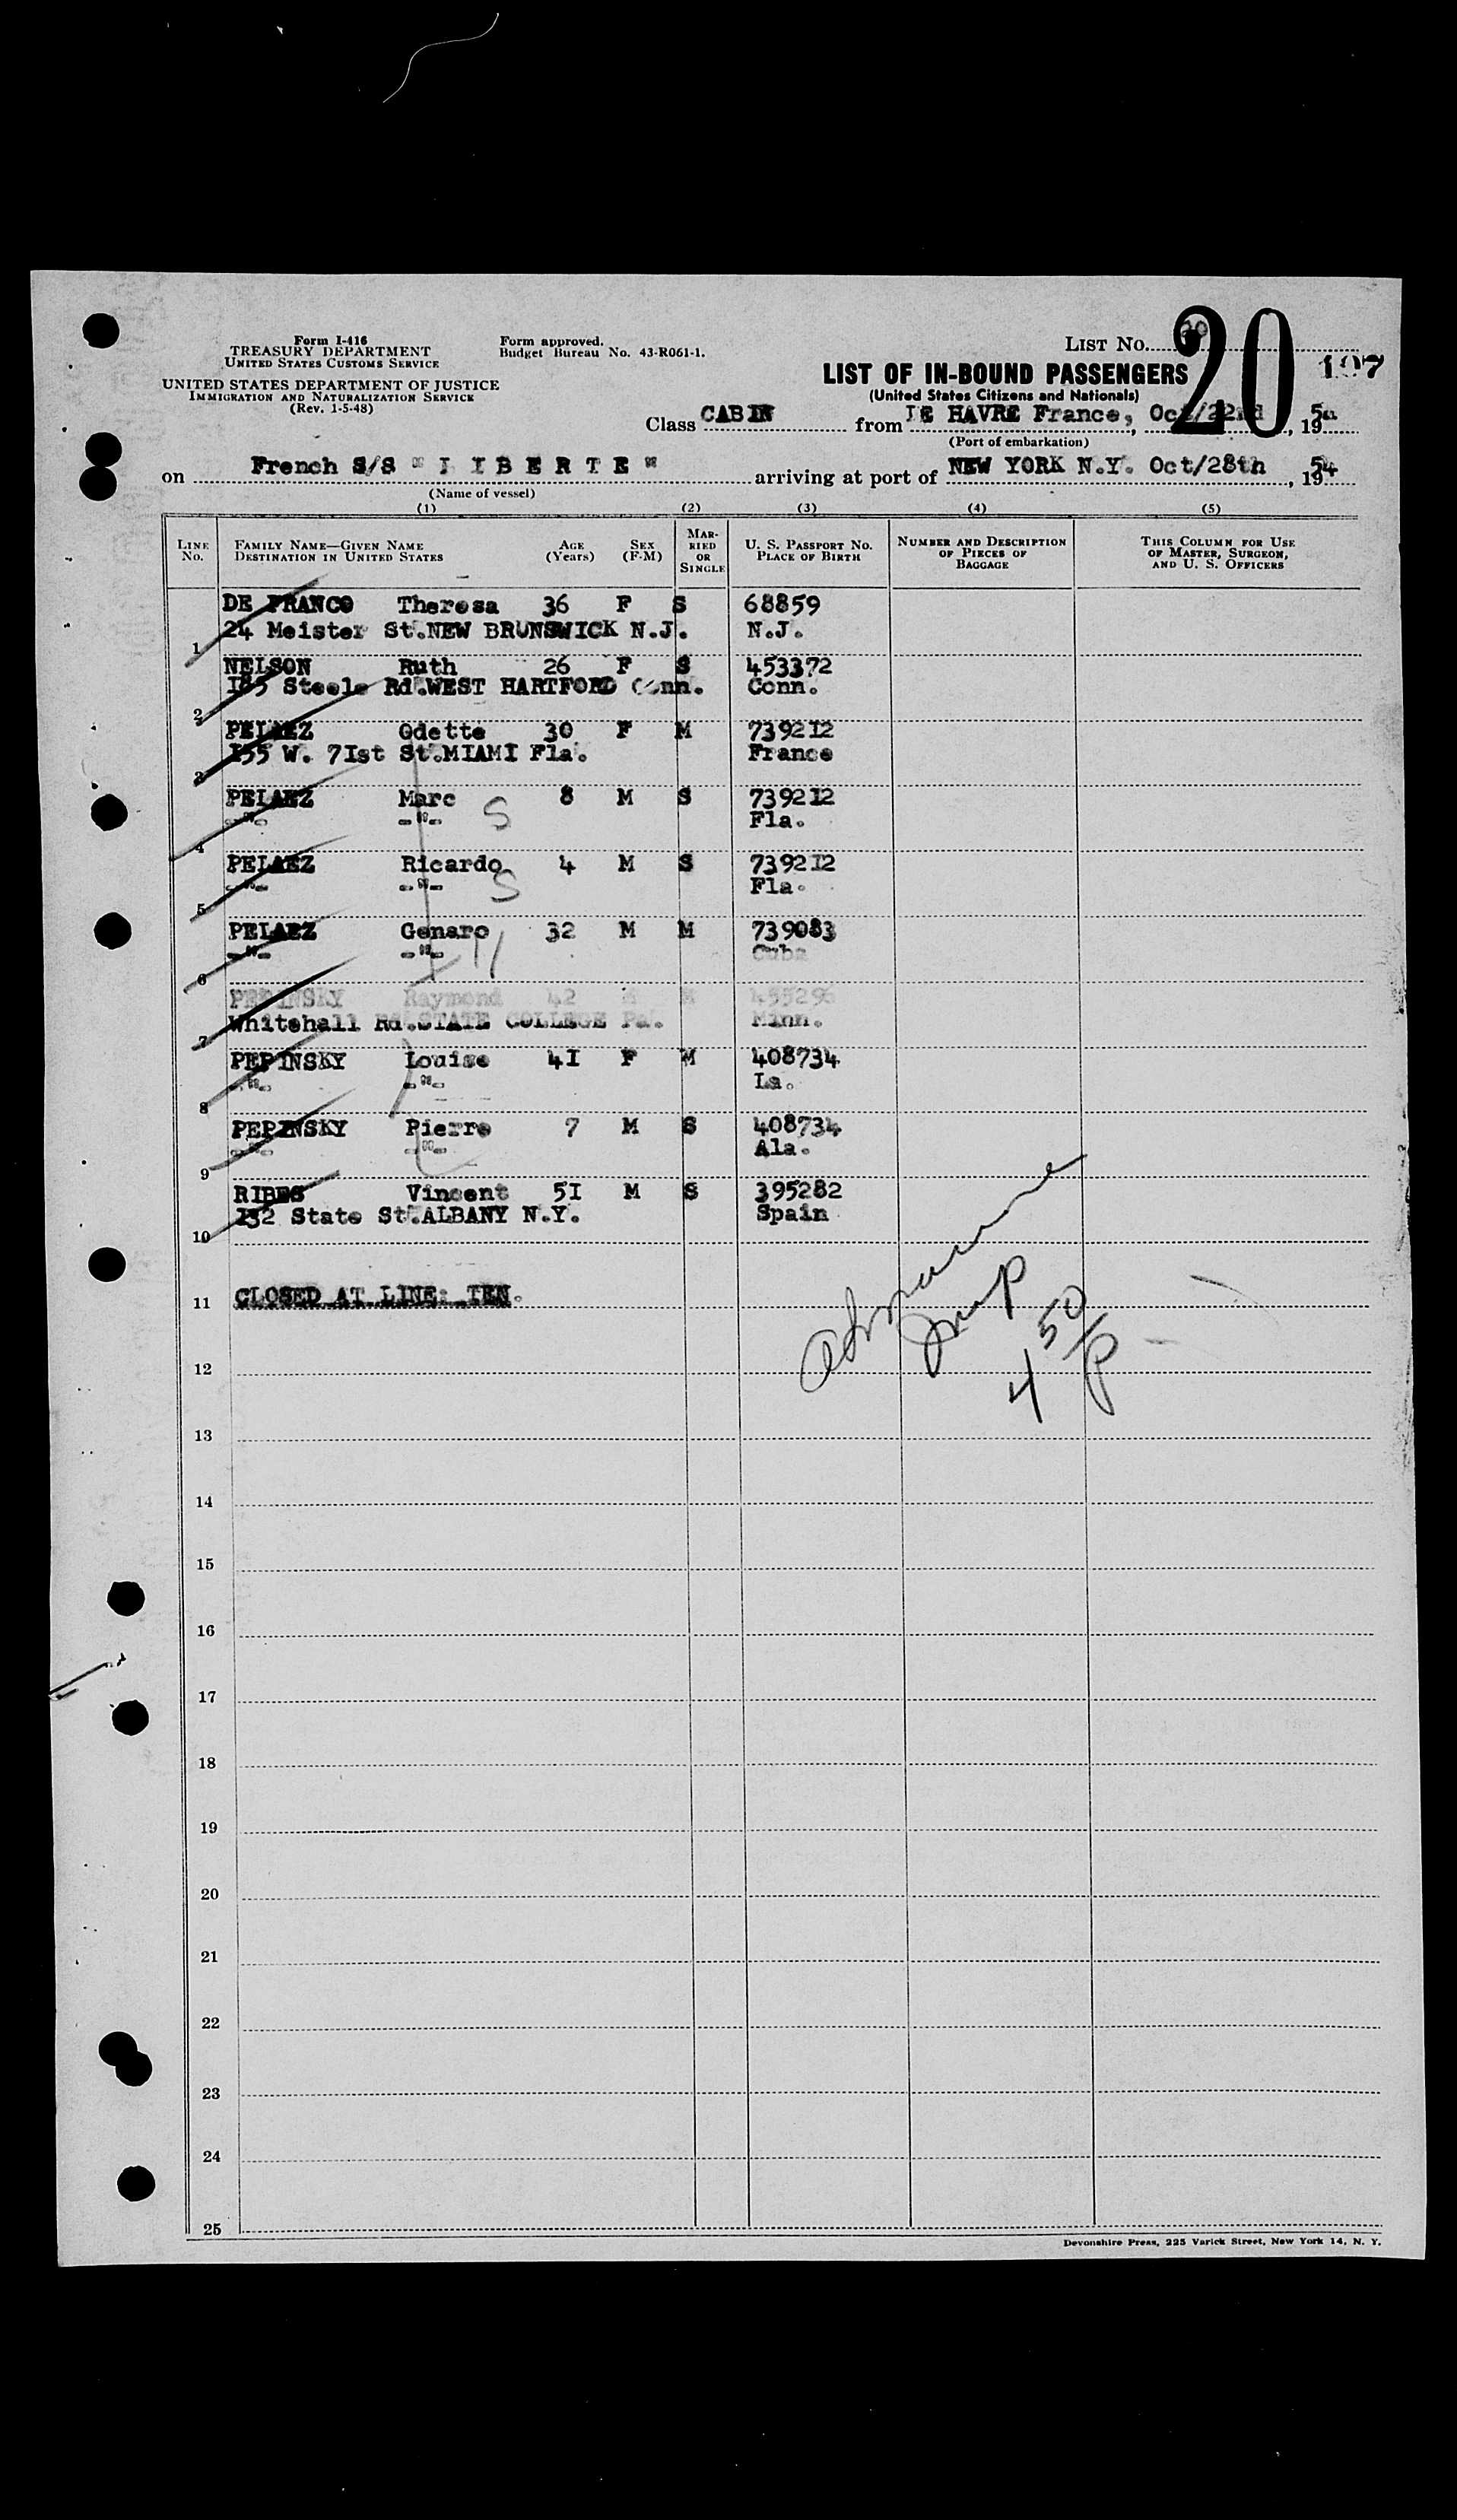 Form I-416
TREASURY DEPARTMENT
UNITED STATES CUSTOMS SERVICE
UNITED STATES DEPARTMENT OF JUSTICE
IMMIGRATION AND NATURALIZATION SERVICE
(Rev. 1-5-48)
Form approved.
Budget Bureau No. 43-R061-1.
LIST NO. 20
197
LIST OF IN-BOUND PASSENGERS
(United States Citizens and Nationals)
Class CABIN from LE HAVRE France, Oct/22nd, 195
(Port of embarkation)
on French S/S "L I B E R T E" arriving at port of NEW YORK N.Y. Oct/28th, 1954
(Name of vessel)
(1) (2) (3) (4) (5)
LINE NO. FAMILY NAME—GIVEN NAME DESTINATION IN UNITED STATES AGE (Years) SEX (F-M) MARRIED OR SINGLE U. S. PASSPORT NO. PLACE OF BIRTH NUMBER AND DESCRIPTION OF PIECES OF BAGGAGE THIS COLUMN FOR USE OF MASTER, SURGEON, AND U. S. OFFICERS
DE FRANCO Theresa 36 F S 68859
1 24 Meister St.NEW BRUNSWICK N.J. N.J.
NELSON Ruth 26 F S 453372
2 I85 Steele Rd.WEST HARTFORD Conn. Conn.
PELAEZ Odette 30 F M 7392I2
3 I55 W. 7Ist St.MIAMI Fla. France
PELAEZ Marc 8 M S 7392I2
4 -"- -"- S Fla.
PELAEZ Ricardo 4 M S 7392I2
5 -"- -"- S Fla.
PELAEZ Genaro 32 M M 739083
6 -"- -"- Cuba
PEPINSKY Raymond 42 M M 455296
7 Whitehall Rd.STATE COLLEGE Pa. Minn.
PEPINSKY Louise 4I F M 408734
8 -"- -"- La.
PEPINSKY Pierre 7 M S 408734
9 -"- -"- Ala.
RIBES Vincent 5I M S 395282
10 I32 State St.ALBANY N.Y. Spain
11 CLOSED AT LINE: TEN.
12
13
14
15
16
17
18
19
20
21
22
23
24
25
4 50
Devonshire Press, 225 Varick Street, New York 14, N. Y.